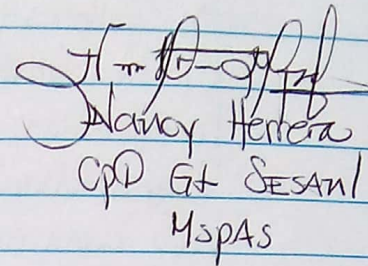 Nancy Herrera
CpD Gt SESAN/
MspAs